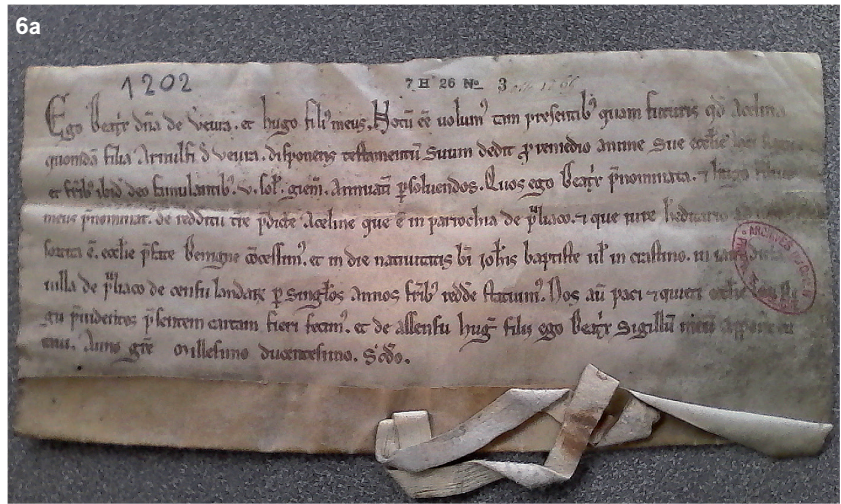 6a
1202
7 H 26 No 3
Ego Beatrx dña de Veura. et hugo fili⁹ meus. Notū eē uolum⁹ tam presentib⁹ quam futuris qđ Acelina
quondā filia Arnulfi đ veura. disponens testamentū suum dedit ꝓ remedio anime sue ecclie
et frib⁹ ibiđ deo famulantib⁹ .v. sol. giem. Annuatī ꝑsoluendos. Quos ego Beatrx p̄nominata. ⁊ hugo filius
meus p̄nominat. de redditu tre p̄dicte Aceline que ē in parrochia de p̄liaco. ⁊ que iure
ē. ecclie p̄fate benigne cōcessim⁹. et in die natiuitatis bī iohīs baptiste ul in crastino. in
uilla de p̄liaco de censu landarū ꝑ singlos annos frib⁹ redde statuim⁹. Nos aū paci ⁊ quieti ecclie
p̄uidentes p̄sentem cartam fieri fecim⁹. et de assensu hug filii ego Beatrx sigillū meū
Anno grē Millesimo ducentesimo. Scđo.